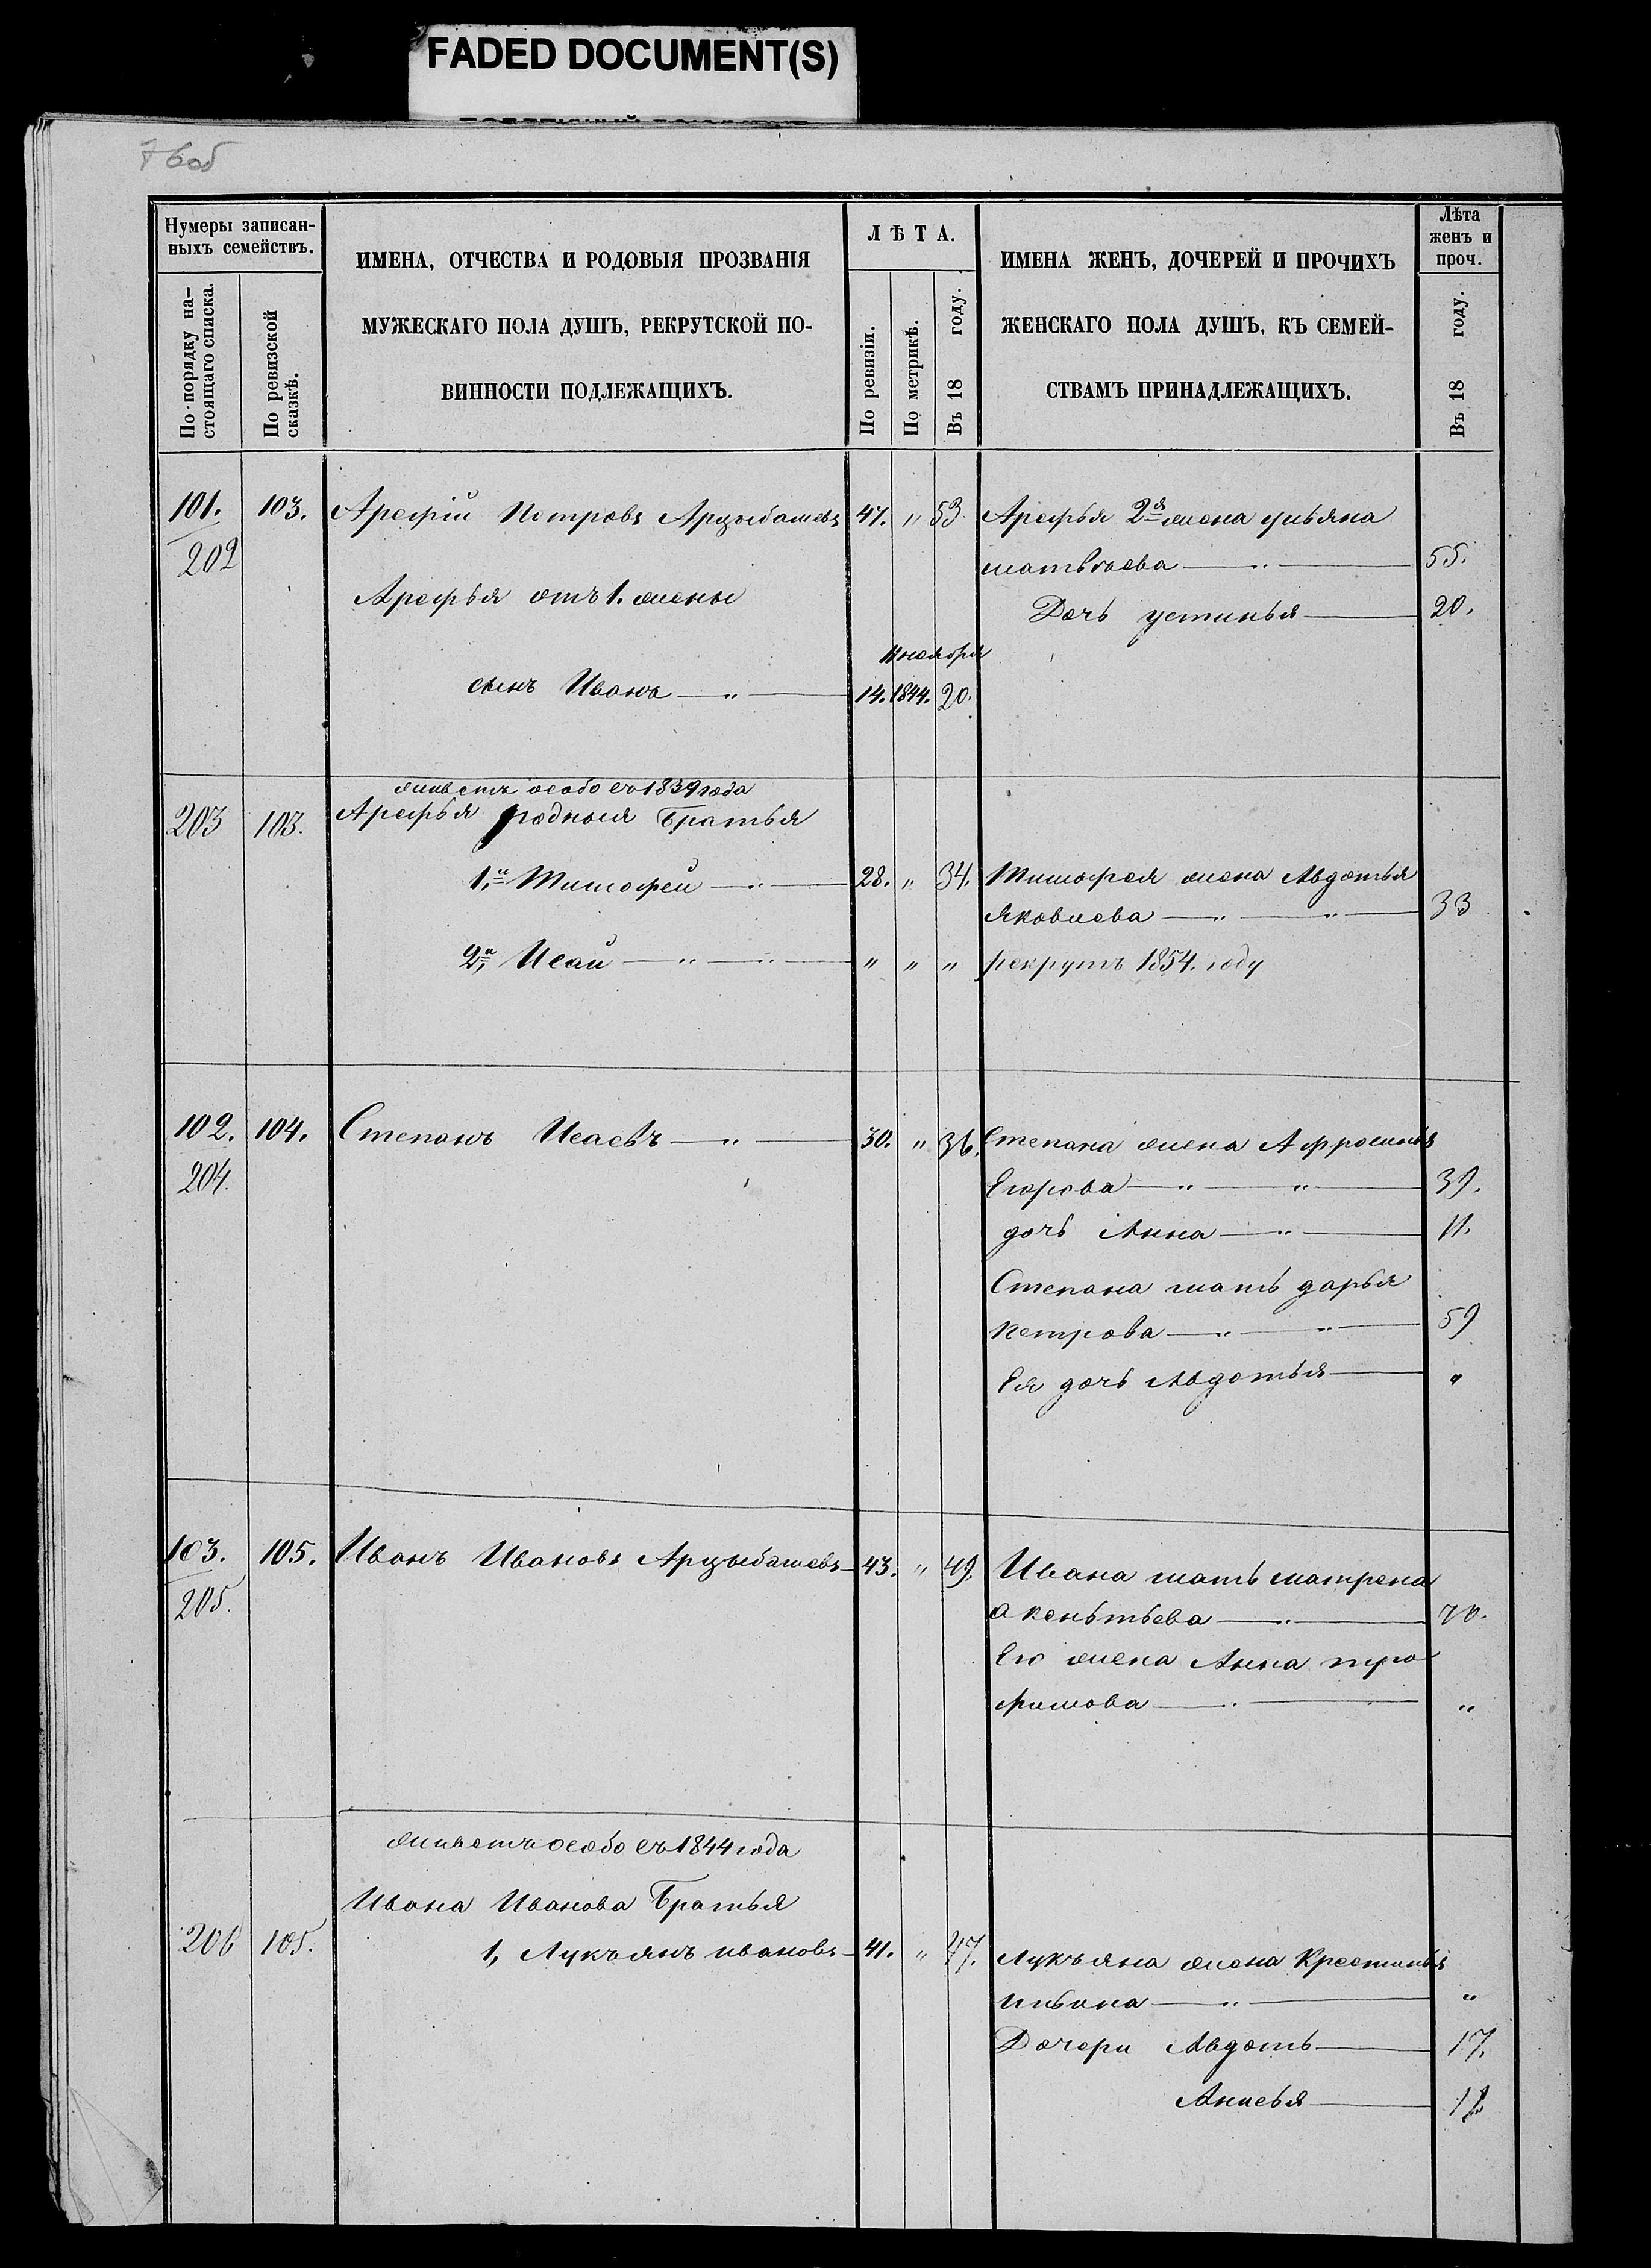 FADED DOCUMENT(S)
76об
Нумеры записан-
ныхъ семействъ.
По порядку на-
стоящаго списка.
По ревизской
сказкѣ.
ИМЕНА, ОТЧЕСТВА И РОДОВЫЯ ПРОЗВАНІЯ
МУЖЕСКАГО ПОЛА ДУШЪ, РЕКРУТСКОЙ ПО-
ВИННОСТИ ПОДЛЕЖАЩИХЪ.
ЛѢТА.
По ревизіи.
По метрикѣ.
Въ 18 году.
ИМЕНА ЖЕНЪ, ДОЧЕРЕЙ И ПРОЧИХЪ
ЖЕНСКАГО ПОЛА ДУШЪ, КЪ СЕМЕЙ-
СТВАМЪ ПРИНАДЛЕЖАЩИХЪ.
Лѣта
женъ и
проч.
Въ 18 году.
101. 103. Арефій Петровъ Арцыбашевъ 47. " 53 Арефья 2я жена ульяна
202 матвѣева — " — 55.
Арефья отъ 1. жены
Дочь устинья — 20.
11 ноября
сынъ Иванъ — " — 14. 1844. 20.
живетъ особо съ 1839 года
203 103. Арефья родныя Братья
1,й Тимофей — " — 28. " 34. Тимофея жена Авдотья
Яковлева — " — " — 33
2,й Исай — " — " — " " " рекрутъ 1854. году
102. 104. Степанъ Исаевъ — " — 30. " 36. Степана жена Афросинья
204. Егорова — " — " — 39.
дочь Анна — " — 11.
Степана мать дарья
петрова — " — " — 59
Ея дочь Авдотья — "
103. 105. Иванъ Ивановъ Арцыбашевъ — 43. " 49. Ивана мать матрена
205. аксентьева — " — 70.
Его жена Анна тро
фимова — " — "
живетъ особо съ 1844 года
Ивана Иванова Братья
206 105. 1, Лукъянъ ивановъ — 41. " 47. Лукъяна жена Крестинья
ильина — " — "
Дочери Авдоть — 17.
Анисья — 12